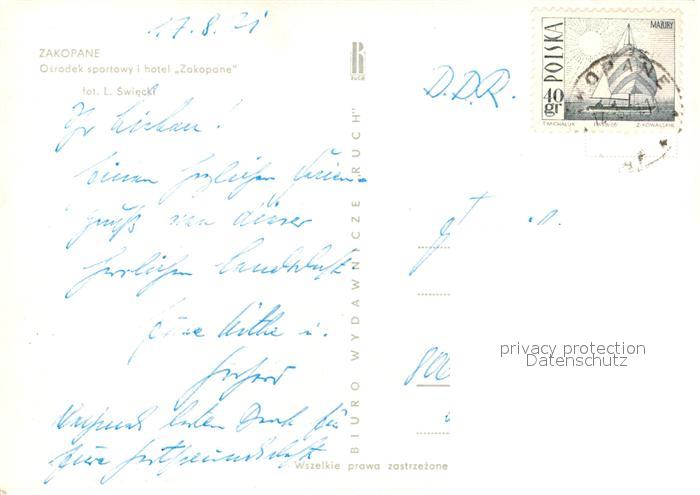 17.8.71
ZAKOPANE
Ośrodek sportowy i hotel „Zakopane"
fot. L. Święcki
Ihr Lieben!
einen herzlichen Ferien-
gruß von dieser
herrlichen Landschaft
Eure u.
Nochmals besten Dank für
Eure Gastfreundschaft
BIURO WYDAWNICZE „RUCH"
RUCH
D.D.R.
POLSKA
MAZURY
40 gr
T. MICHALUK
Z. KOWALSKI
ZAKOPANE
800
privacy protection
Datenschutz
Wszelkie prawa zastrzeżone